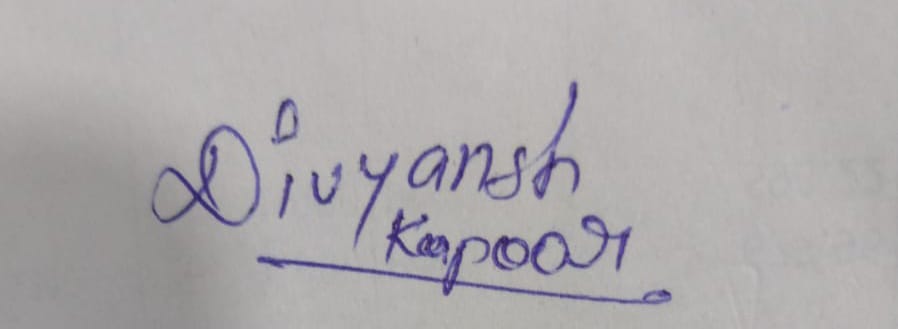 Divyansh
Kapoor